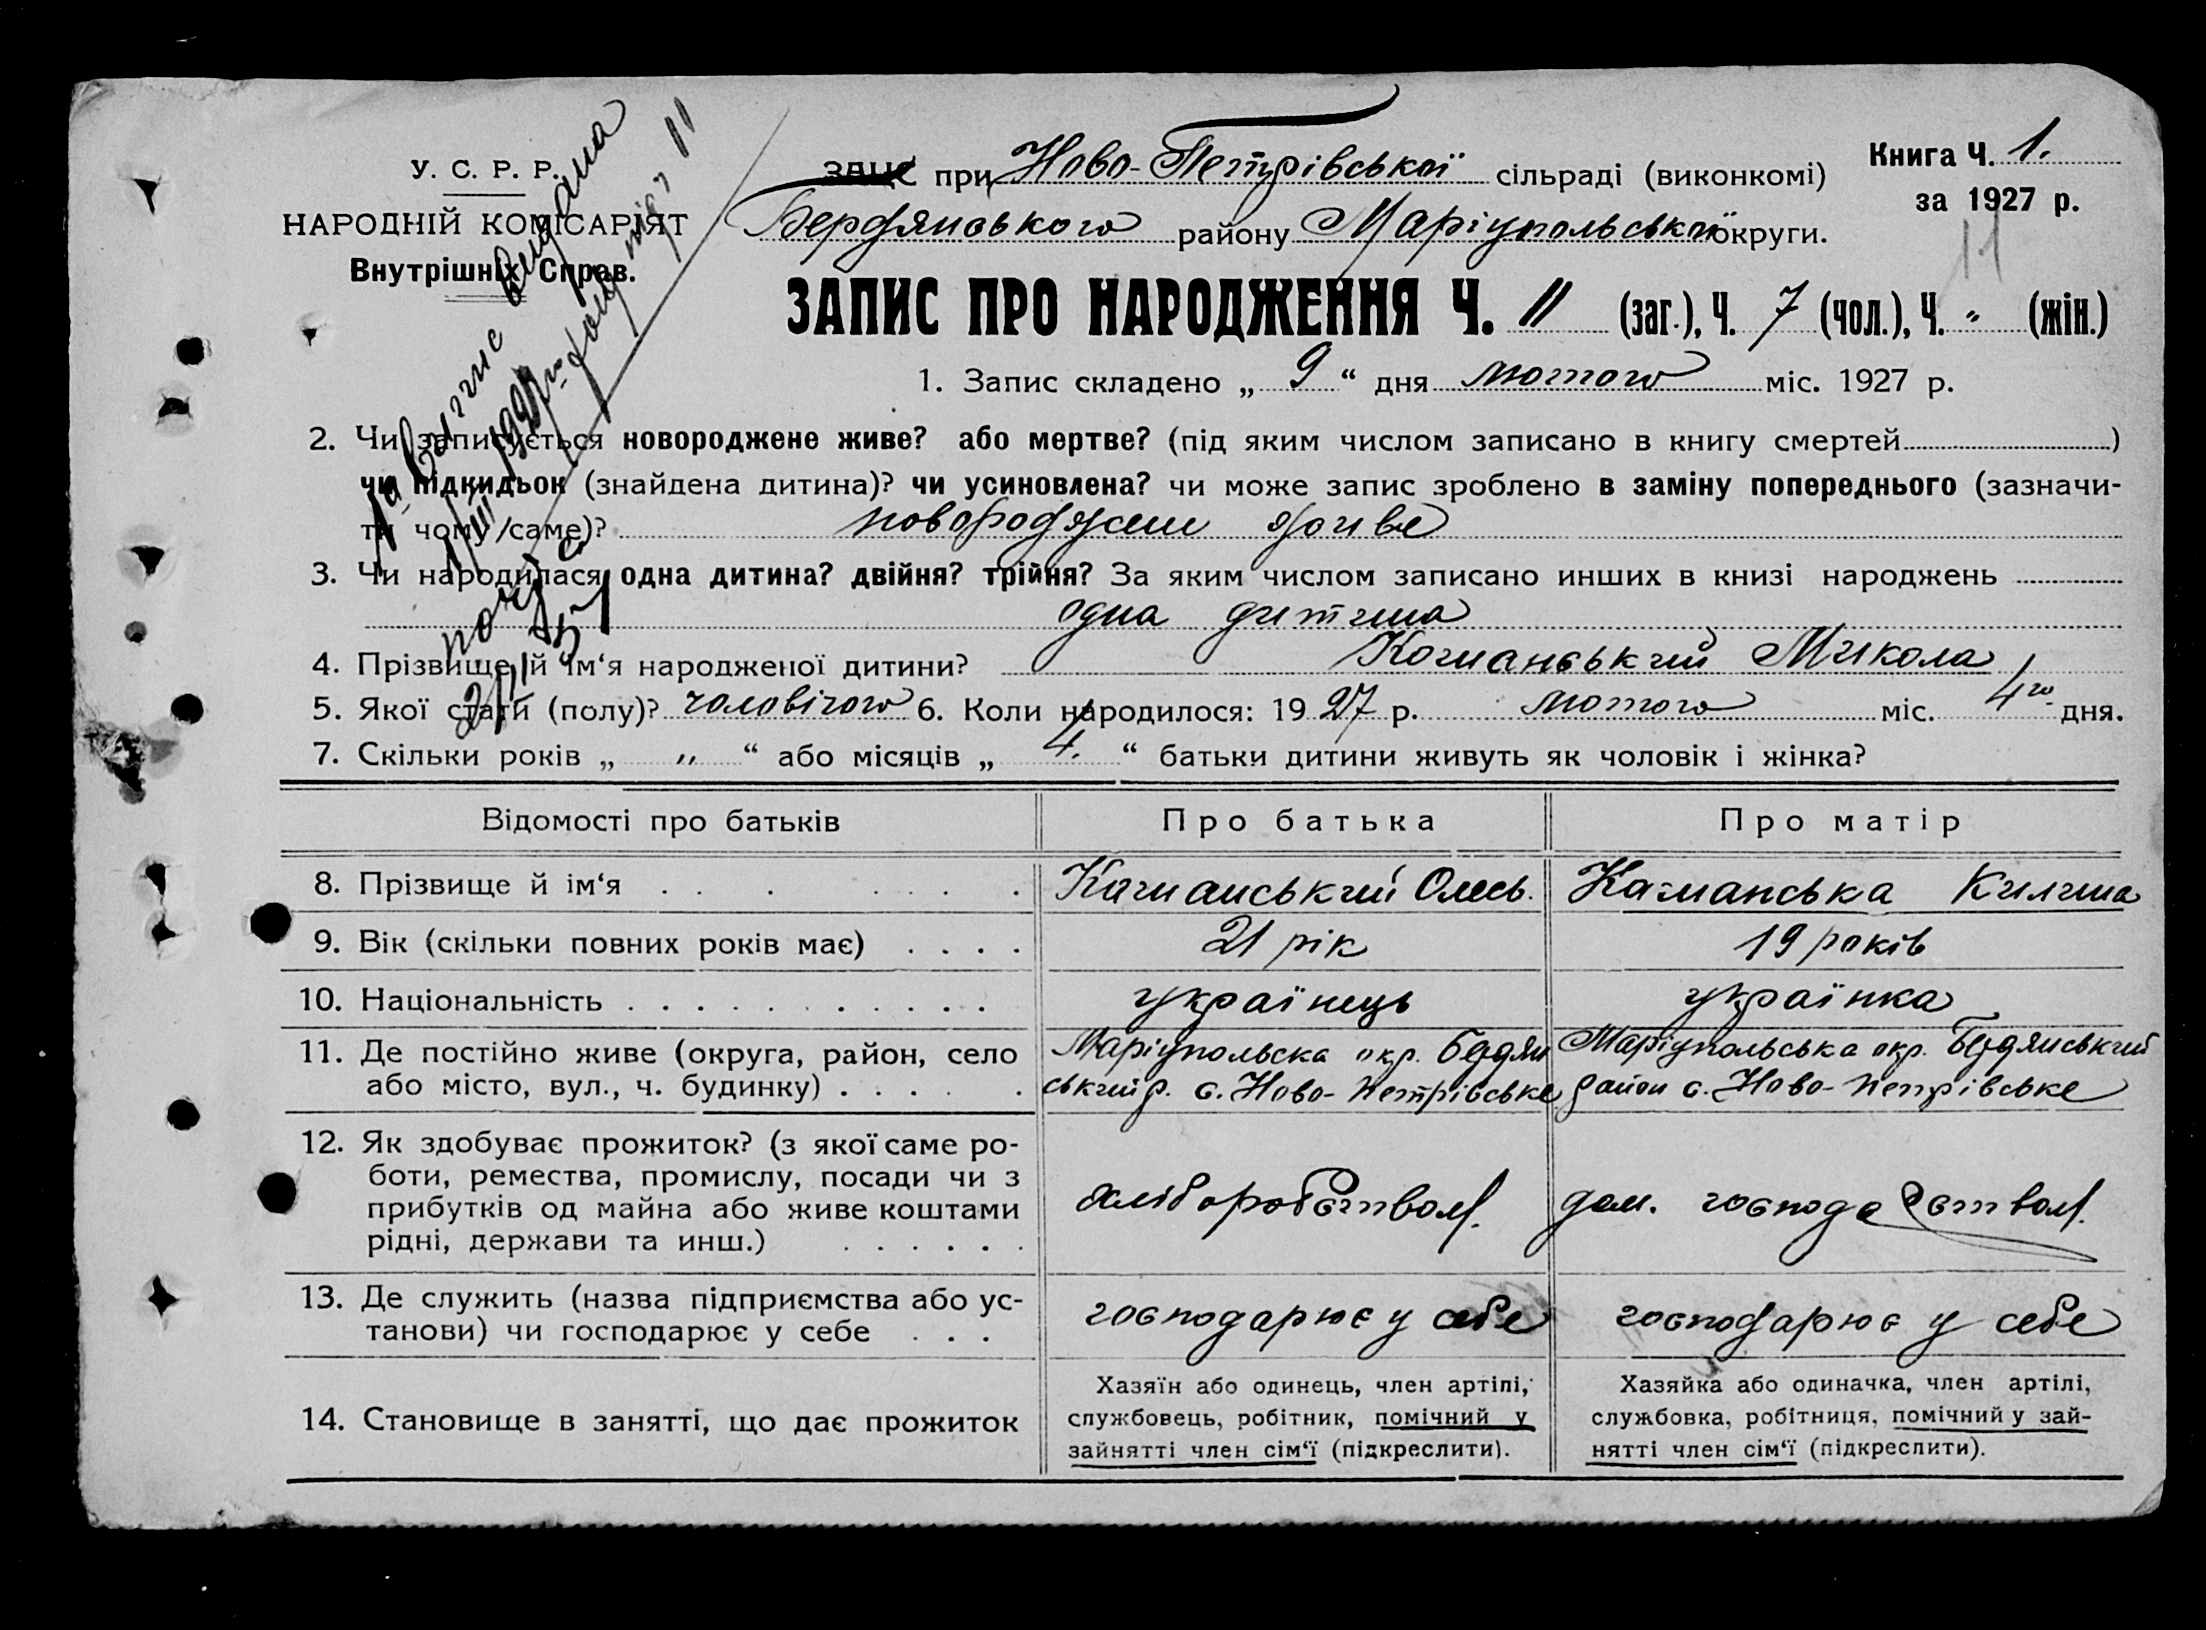 У. С. Р. Р.
НАРОДНІЙ КОМІСАРІЯТ
Внутрішніх Справ.
ЗАЦС при Ново-Петрівської сільраді (виконкомі)
Бердянського району Маріупольської округи.
Книга Ч. 1.
за 1927 р.
11
ЗАПИС ПРО НАРОДЖЕННЯ Ч. 11 (заг.), Ч. 7 (чол.), Ч. „ (жін.)
1. Запис складено „ 9 “ дня лютого міс. 1927 р.
2. Чи записується новороджене живе? або мертве? (під яким числом записано в книгу смертей)
чи підкидьок (знайдена дитина)? чи усиновлена? чи може запис зроблено в заміну попереднього (зазначи-
ти чому саме)? новороджене живе
3. Чи народилася одна дитина? двійня? трійня? За яким числом записано инших в книзі народжень
одна дитина
4. Прізвище й ім‘я народженої дитини? Микола
5. Якої статі (полу)? чоловічого 6. Коли народилося: 1927 р. лютого міс. 4го дня.
7. Скільки років „ „ “ або місяців „ 4. “ батьки дитини живуть як чоловік і жінка?
Відомості про батьків Про батька Про матір
8. Прізвище й ім‘я Олесь. Килина
9. Вік (скільки повних років має) 21 рік 19 років
10. Національність українець українка
11. Де постійно живе (округа, район, село Маріупольска окр. Бердян Маріупольська окр. Бердянський
або місто, вул., ч. будинку) ський р. с. Ново-Петрівське район с. Ново-Петрівське
12. Як здобуває прожиток? (з якої саме ро-
боти, ремества, промислу, посади чи з
прибутків од майна або живе коштами
рідні, держави та инш.)
хліборобством. дом. господарством.
13. Де служить (назва підприємства або ус-
танови) чи господарює у себе
господарює у себе господарює у себе
14. Становище в занятті, що дає прожиток
Хазяїн або одинець, член артілі,
службовець, робітник, помічний у
зайнятті член сім‘ї (підкреслити).
Хазяйка або одиначка, член артілі,
службовка, робітниця, помічний у зай-
нятті член сім‘ї (підкреслити).